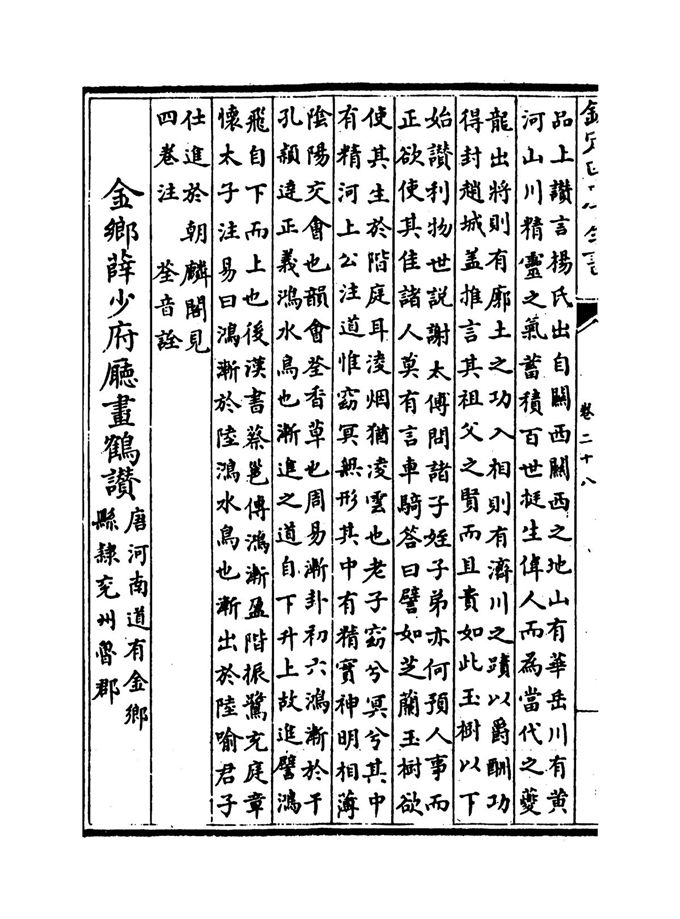 卷二十八
品上讚言楊氏出自關西關西之地山有華岳川有黃
河山川精靈之氣蓄積百世挺生偉人而為當代之夔
龍出將則有廓土之功入相則有濟川之蹟以爵酬功
得封趙城盖推言其祖父之賢而且貴如此玉樹以下
始讚利物世説謝太傅問諸子姪子弟亦何預人事而
正欲使其佳諸人莫有言車騎答曰譬如芝蘭玉樹欲
使其生於階庭耳淩烟猶淩雲也老子窈兮冥兮其中
有精河上公注道惟窈冥無形其中有精實神明相薄
陰陽交會也韻會荃香草也周易漸卦初六鴻漸於干
孔穎達正義鴻水鳥也漸進之道自下升上故進譬鴻
飛自下而上也後漢書蔡邕傳鴻漸盈階振鷺充庭章
懷太子注易曰鴻漸於陸鴻水鳥也漸出於陸喻君子
仕進於朝麟閣見
四卷注　荃音詮
金鄉薛少府廳畫鶴讚
唐河南道有金鄉
縣隸兗州魯郡